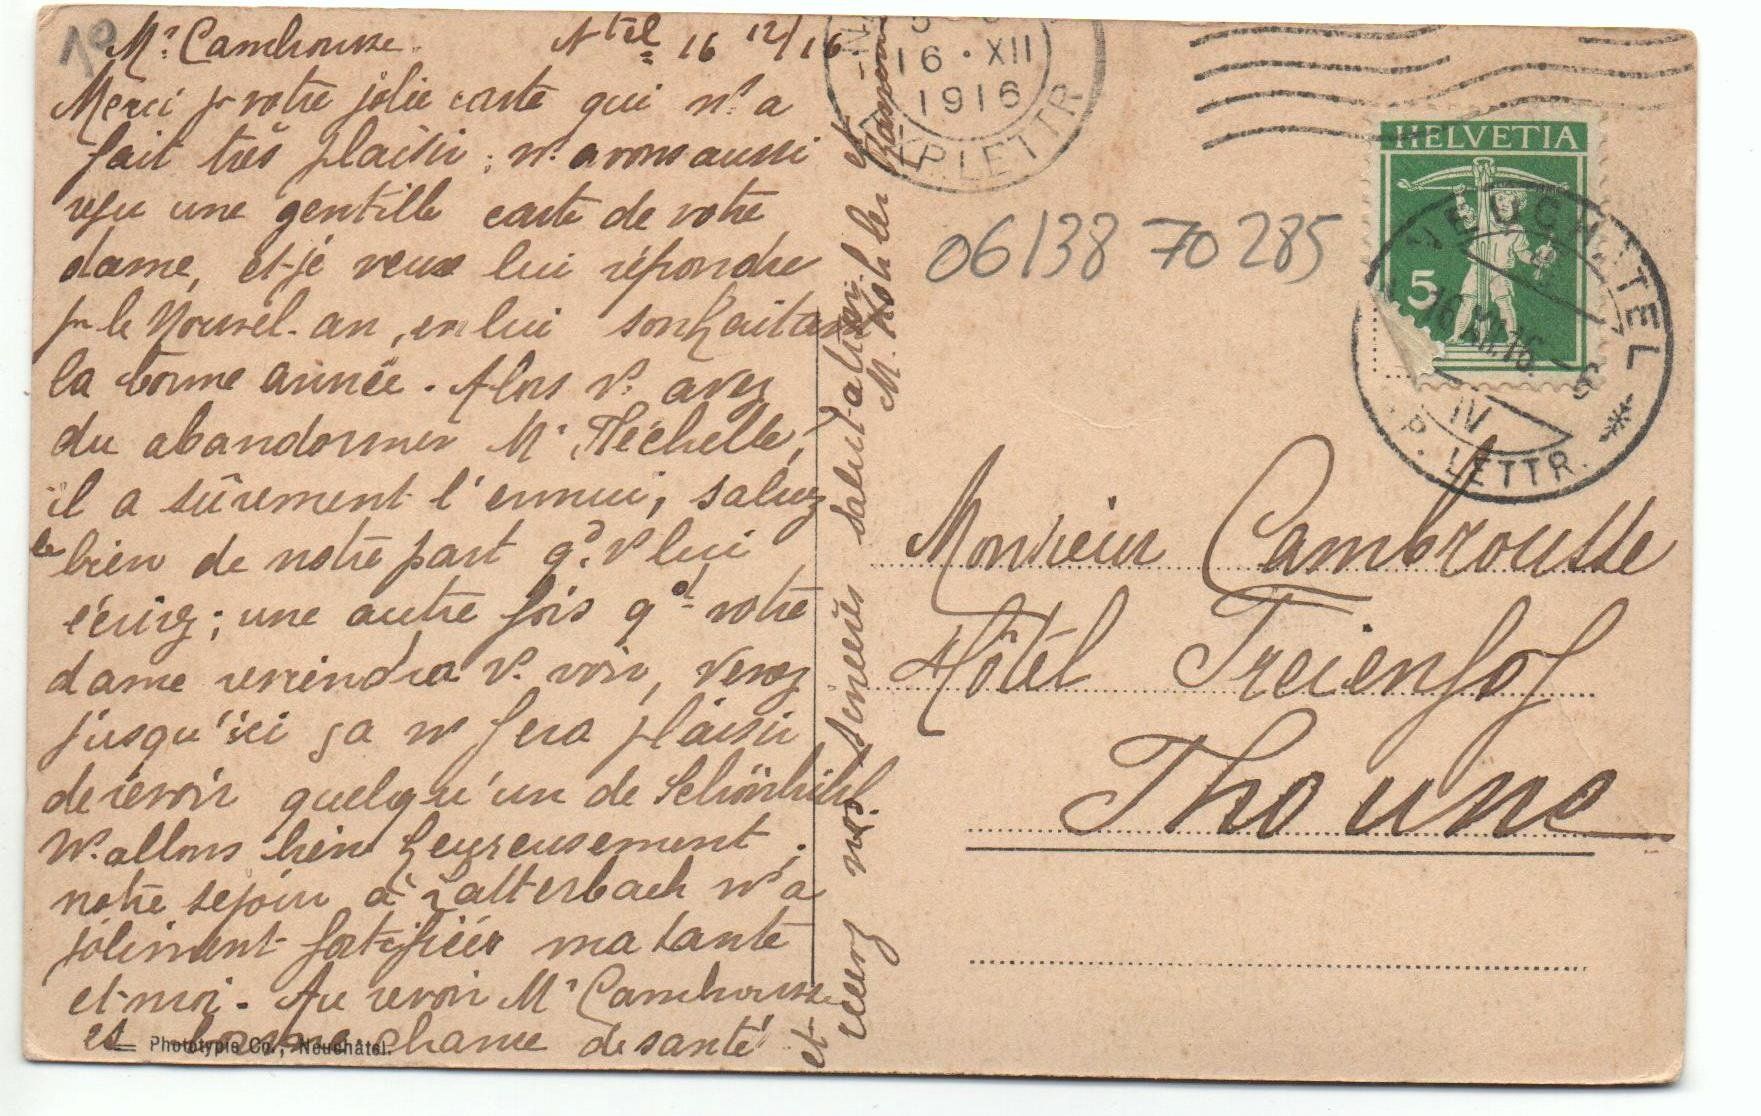 10
Mr Cambrousse. Ntel 16 12/16
Merci pr votre jolie carte qui ns a
fait très plaisir; ns avons aussi
reçu une gentille carte de votre
dame, et je veux lui répondre
pr le Nouvel-an, en lui souhaitant
la bonne année. Alors vs avez
du abandonner Mr Fléchelle,
il a sûrement l'ennui, saluez
le bien de notre part qd vs lui
écrirez; une autre fois qd votre
dame reviendra vs voir, venez
jusqu'ici ça ns fera plaisir
de revoir quelqu'un de Schönbühl.
Ns allons bien heureusement,
notre séjour à Latterbach ns a
joliment fortifiées ma tante
et moi. Au revoir Mr Cambrousse
et bonne chance de santé
et nos sincères salutations
M. Kohler et
Phototypie Co., Neuchâtel.
16 • XII
1916
P. LETTR
HELVETIA
5
NEUCHATEL
16.XII.16.
IV
P. LETTR.
06/38 70 285
Monsieur Cambrousse
Hôtel Freienhof
Thoune